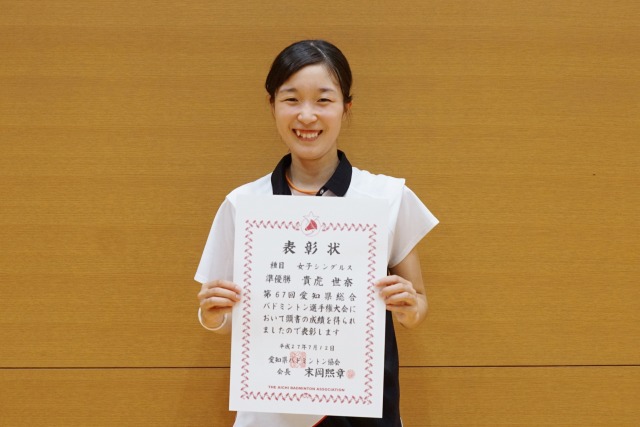 表彰状
種目 女子シングルス
準優勝 貴虎 世奈
第67回愛知県総合
バドミントン選手権大会に
おいて頭書の成績を得られ
ましたので表彰します
平成27年7月12日
愛知県バドミントン協会
会長 末岡熙章
THE AICHI BADMINTON ASSOCIATION